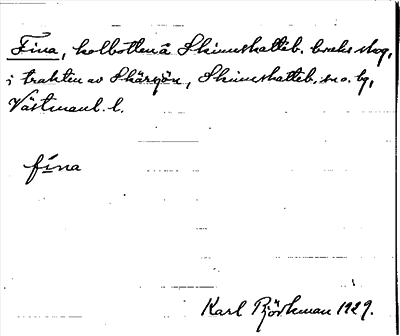 Fina, kolbotten å Skinnskatteb. bruks skog,
i trakten av Skärsjön, Skinnskatteb. sn o. bg,
Västmanl. l.
fina
Karl Björkman 1929.